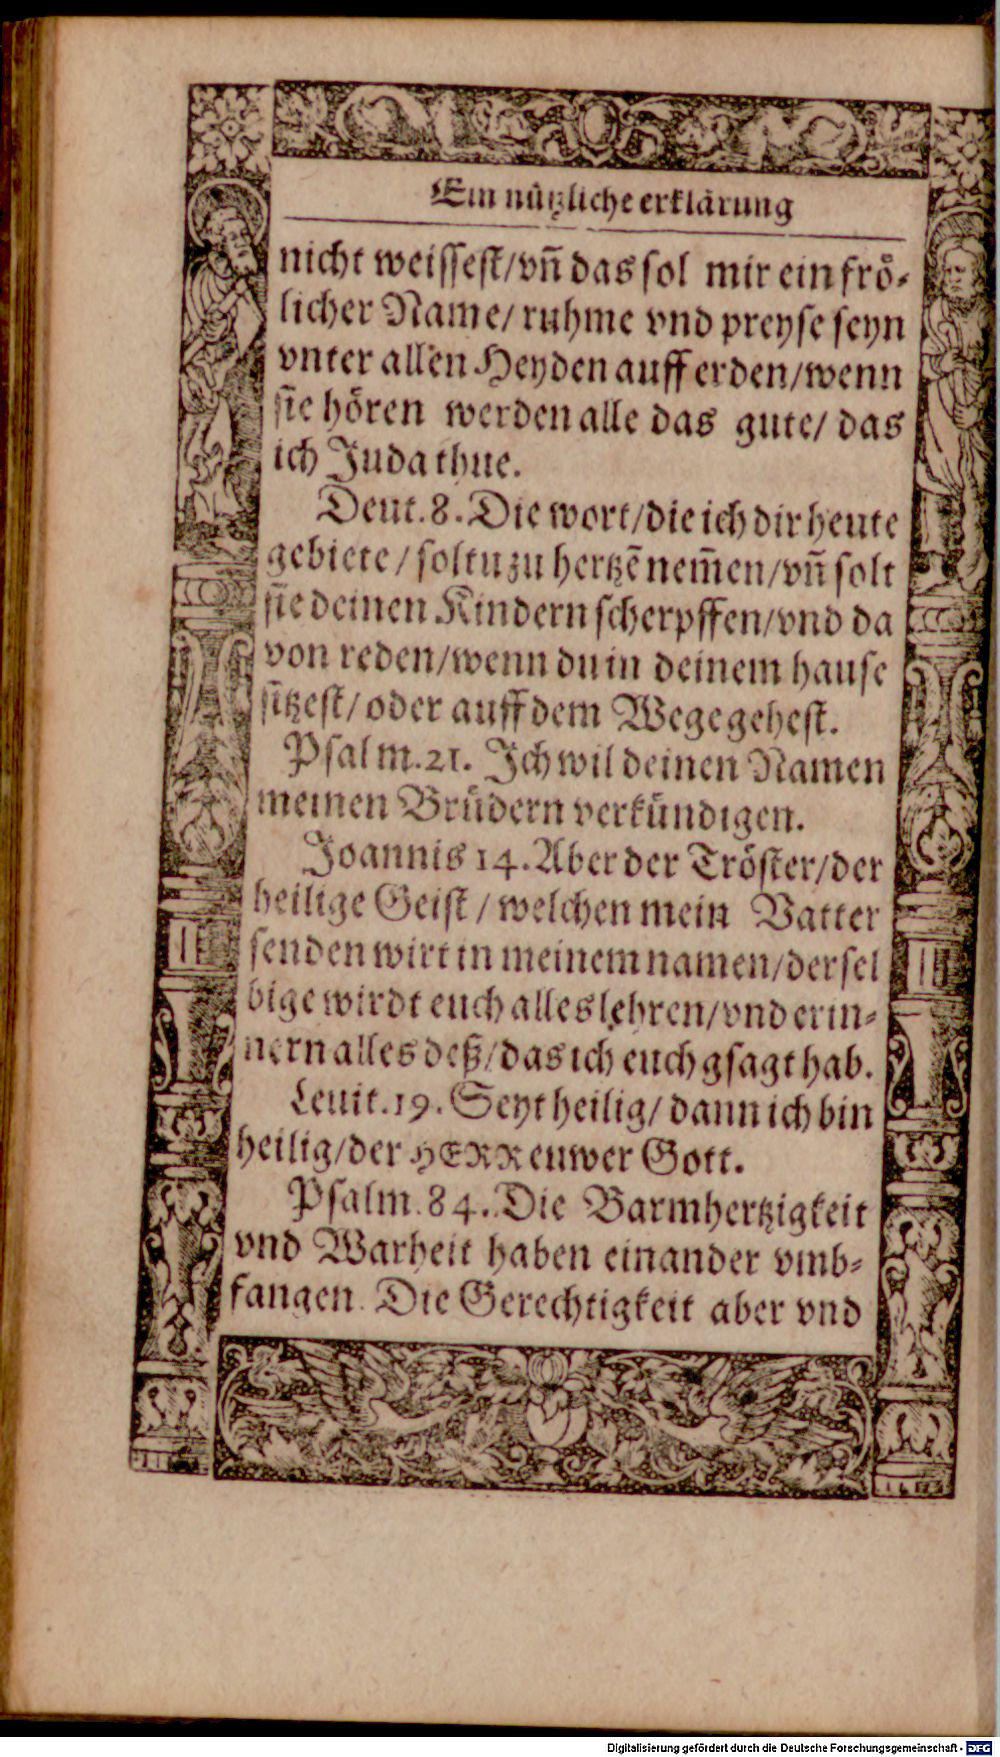 Ein nützliche erklärung
nicht weissest/vñ das sol mir ein frö-
licher Name/ ruhme vnd preyse seyn
vnter allen Heyden auff erden/wenn
sie hören werden alle das gute/ das
ich Juda thue.
Deut. 8. Die wort/die ich dir heute
gebiete/ soltu zu hertzẽ nem̃en/vñ solt
sie deinen Kindern scherpffen/vnd da
von reden/wenn du in deinem hause
sitzest/ oder auff dem Wege gehest.
Psalm. 21. Ich wil deinen Namen
meinen Brüdern verkündigen.
Joannis 14. Aber der Tröster/der
heilige Geist/ welchen mein Vatter
senden wirt in meinem namen/der sel
bige wirdt euch alles lehren/vnd erin-
nern alles deß/das ich euch gsagt hab.
Leuit. 19. Seyt heilig/ dann ich bin
heilig/der HERR euwer Gott.
Psalm. 84. Die Barmhertzigkeit
vnd Warheit haben einander vmb-
fangen. Die Gerechtigkeit aber vnd
Digitalisierung gefördert durch die Deutsche Forschungsgemeinschaft - DFG